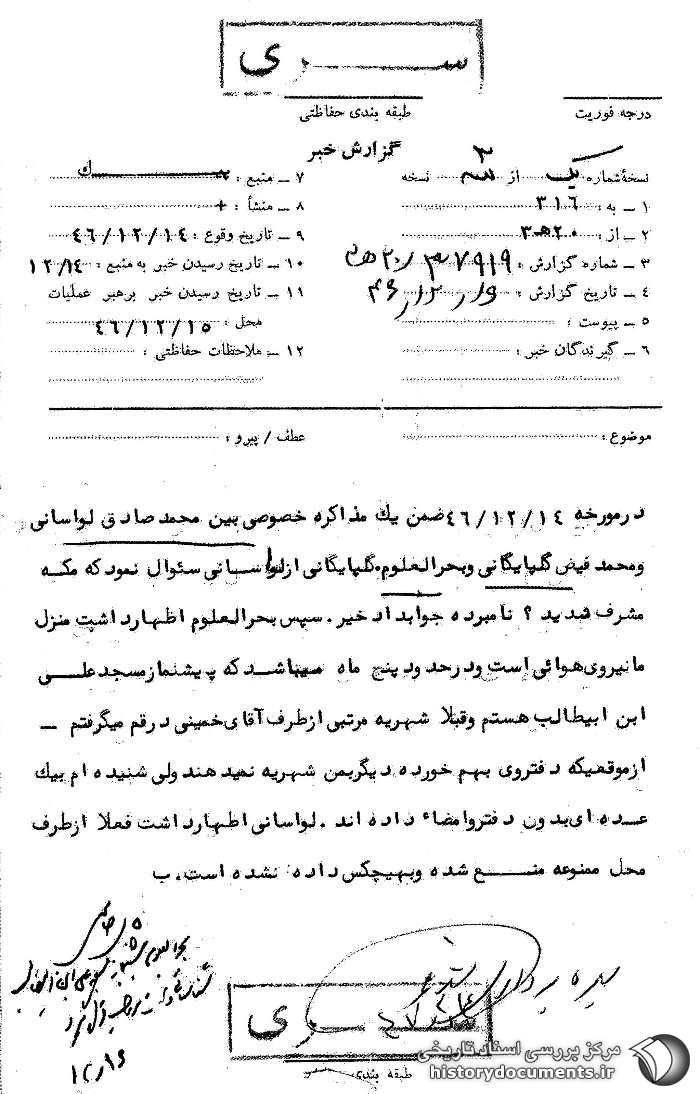 سری
درجه فوریت
طبقه بندی حفاظتی
گزارش خبر
نسخهٔ شماره یک از سه نسخه
۳
۱ ــ به : ۳۱۶
۲ ــ از : ۲۰هـ۳
۳ ــ شماره گزارش : ۳۷۹۱۹
۴ ــ تاریخ گزارش :
۵ ــ پیوست :
۶ ــ گیرندگان خبر :
۷ ــ منبع :
۸ ــ منشأ : +
۹ ــ تاریخ وقوع : ۴۶/۱۲/۱۴
۱۰ ــ تاریخ رسیدن خبر به منبع : ۱۲/۱۴
۱۱ ــ تاریخ رسیدن خبر برهبر عملیات
محل : ۴۶/۱۲/۱۵
۱۲ ــ ملاحظات حفاظتی :
موضوع :
عطف / پیرو :
درمورخه ۴۶/۱۲/۱۴ ضمن یك مذاکره خصوصی بین محمد صادق لواسانی
ومحمد فیض گلپایگانی وبحرالعلوم.گلپایگانی ازلواسانی سئوال نمود که مکه
مشرف شدید ؟ نامبرده جوابداد خیر . سپس بحرالعلوم اظهارد اشت منزل
ما نیروی هوائی است ودرحدود پنج ماه میباشد که پیشنماز مسجد علــی
ابن ابیطالب هستم وقبلا شهریه مرتبی ازطرف آقای خمینی درقم میگرفتم ــ
ازموقعیکه دفتروی بهم خورده دیگربمن شهریه نمید هند ولی شنیده ام بیك
عــده ای بدون دفتروامضاء داده اند . لواسانی اظهارد اشت فعلا ازطرف
محل ممنوعه منــع شده وبهیچکس داده نشده است . ب
سری
طبقه بندی
۱۲/۱۶
مرکز بررسی اسناد تاریخی
historydocuments.ir